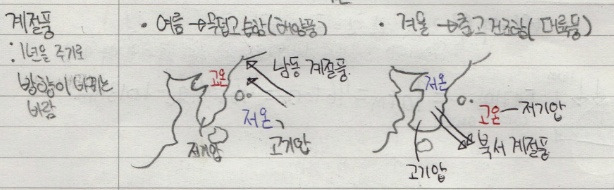 계절풍
: 1년을 주기로
방향이 바뀌는
바람
• 여름 → 무덥고 습함(해양풍)
고온
남동 계절풍
저온,
고기압
저기압
• 겨울 → 춥고 건조함(대륙풍)
저온
고온 - 저기압
북서 계절풍
고기압